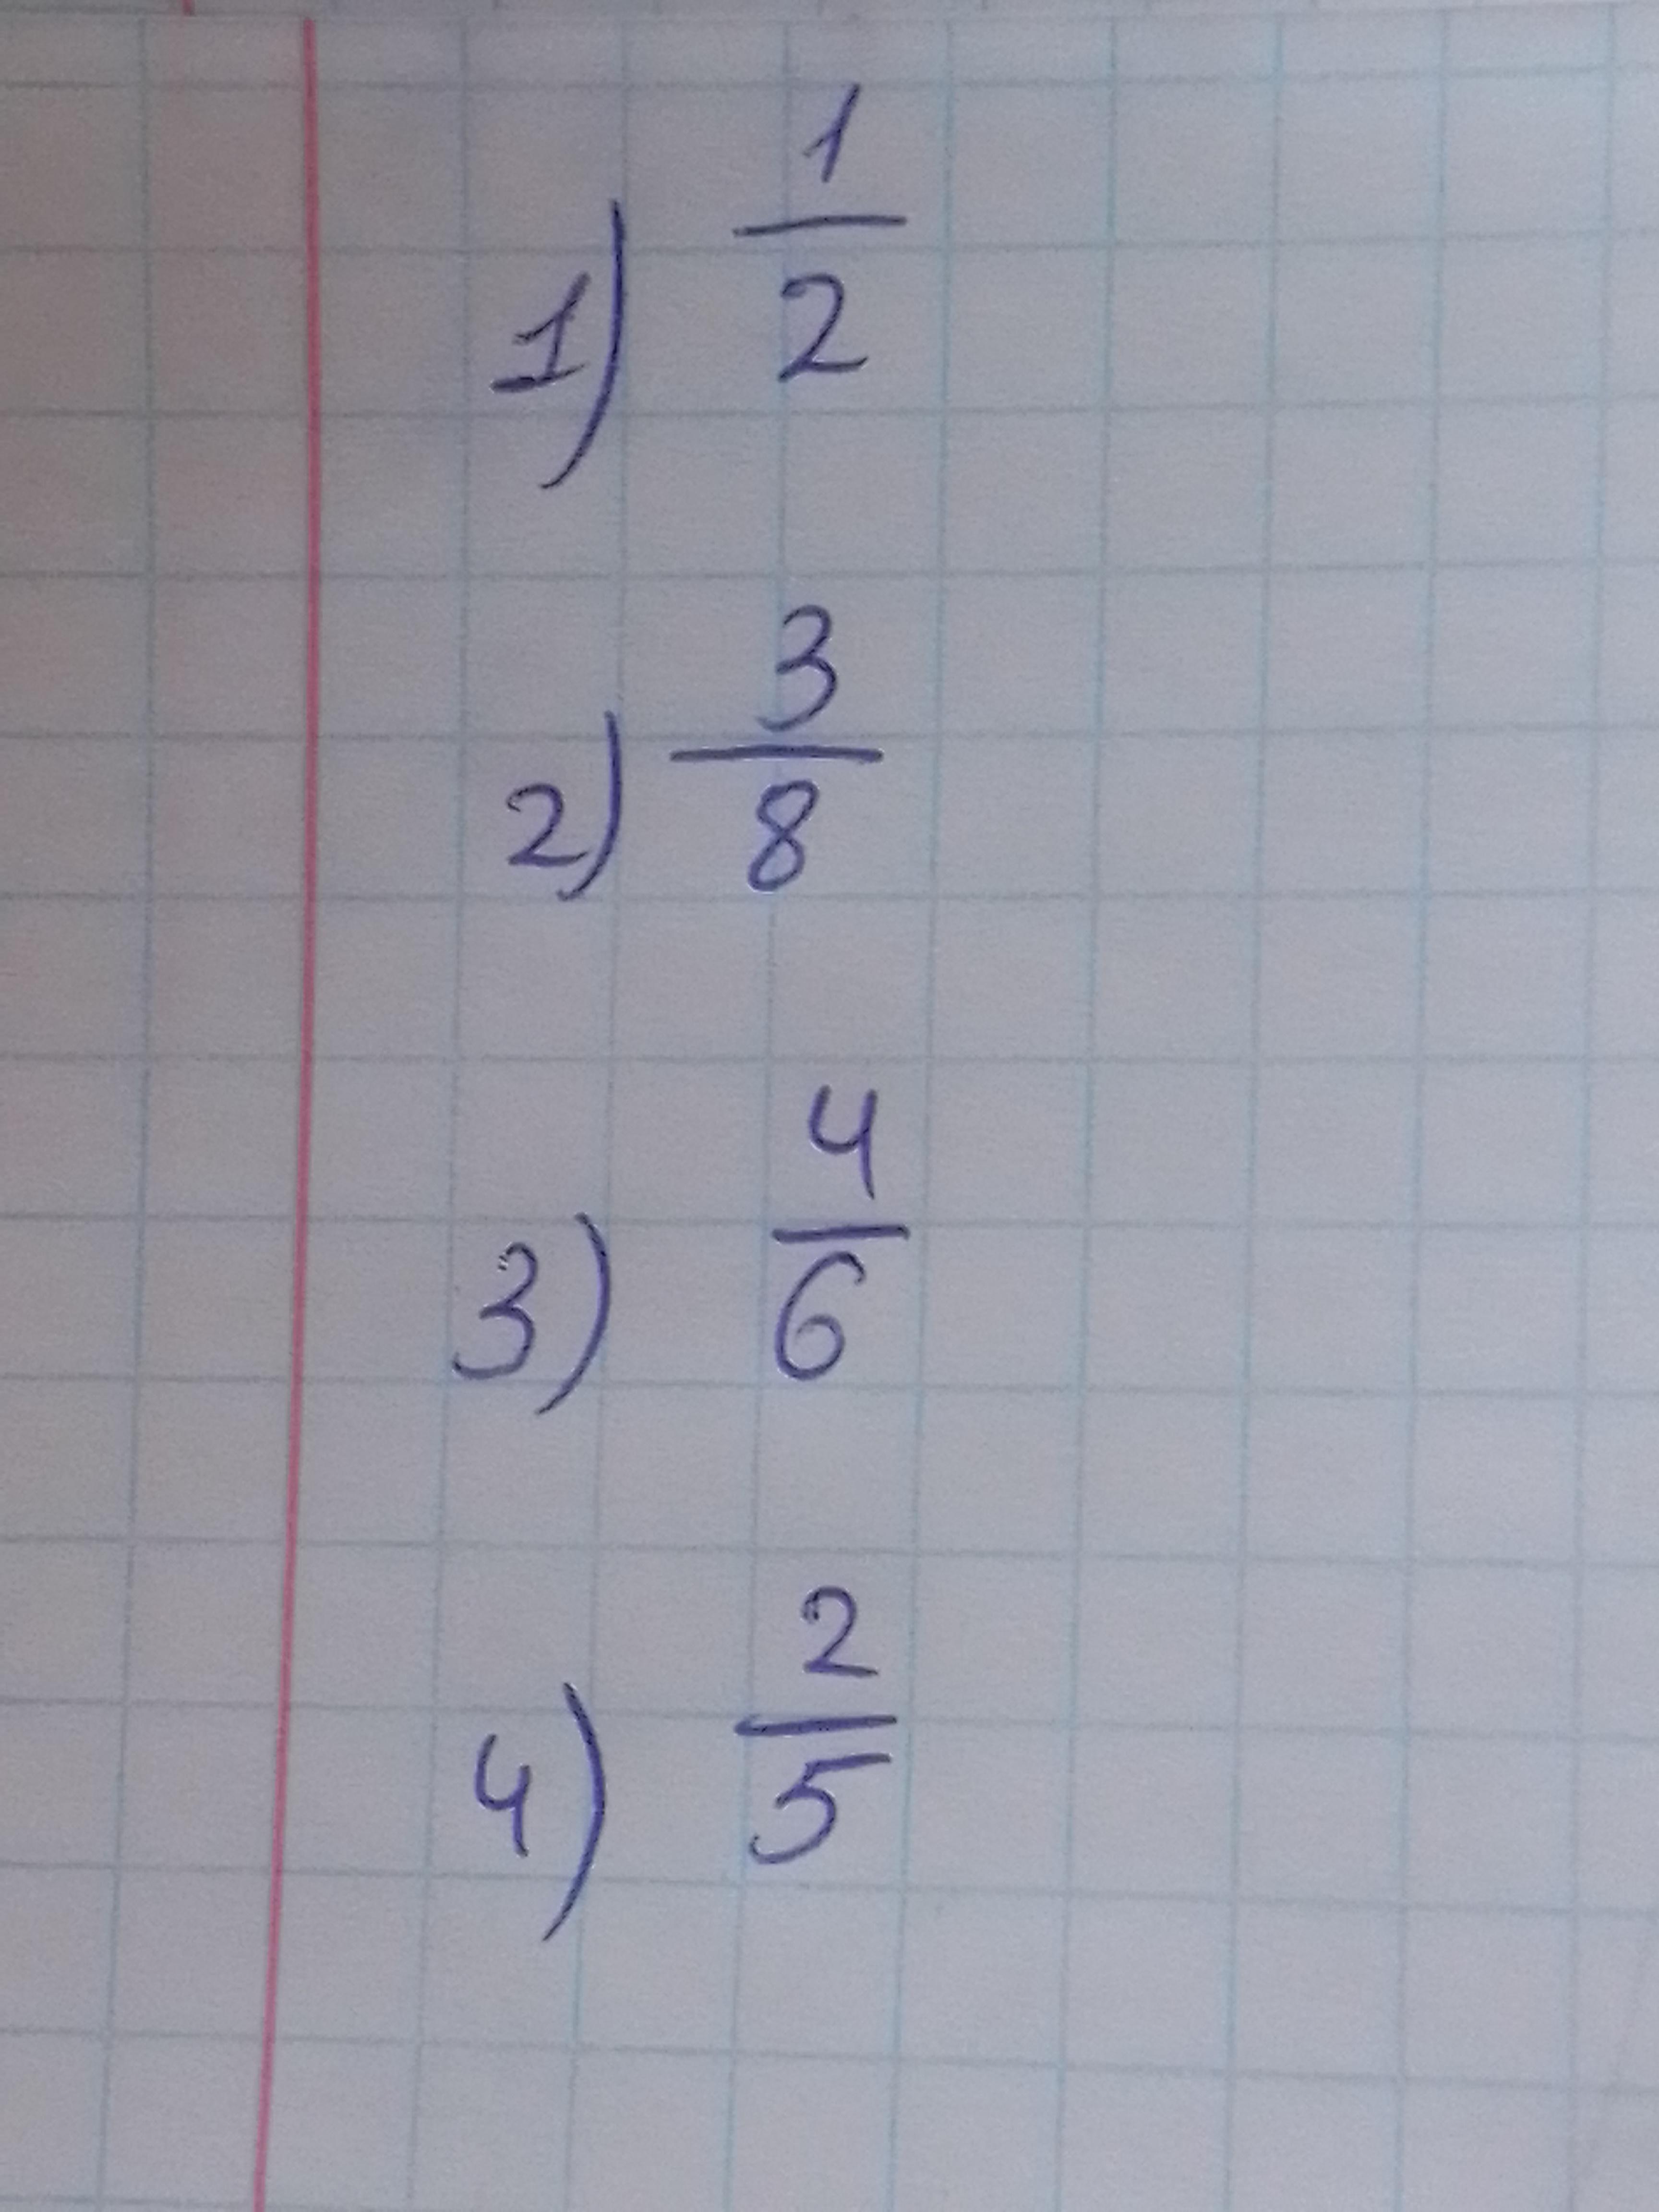 1) 1/2
2) 3/8
3) 4/6
4) 2/5